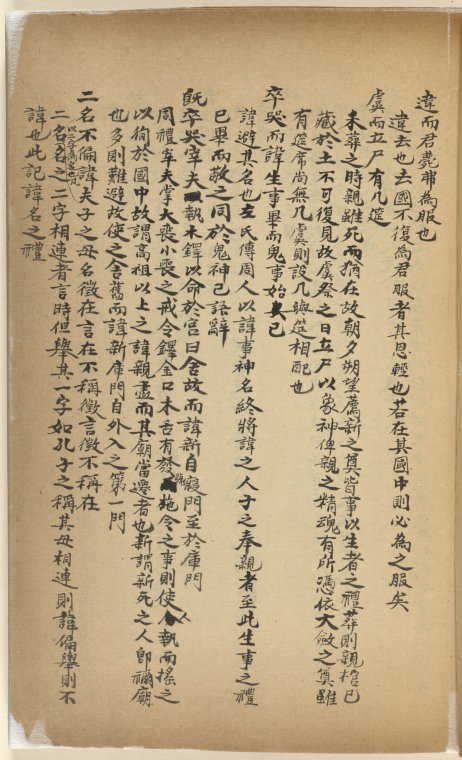 違而君薨弗為服也
違去也去國不復為君服者其恩輕也若在其國中則必為之服矣
虞而立尸有几筵
未葬之時親雖死而猶在故朝夕朔望薦新之奠皆事以生者之禮葬則親棺已
藏於土不可復見故虞祭之日立尸以象神俾親之精魂有所憑依大斂之奠雖
有筵席尚無几虞則設几與筵相配也
卒哭而諱生事畢而鬼事始已
諱避其名也左氏傳周人以諱事神名終將諱之人子之奉親者至此生事之禮
已畢而敬之同於鬼神已語辭
既卒哭宰夫執木鐸以命於宮曰舍故而諱新自寢門至於庫門
周禮宰夫掌大喪小喪之戒令鐸金口木舌有發施令之事則使人執而搖之
以徇於國中故謂高祖以上之諱親盡而其廟當遷者也新謂新死之人即禰廟
也多則難避故使之舍舊而諱新庫門自外入之第一門
二名不偏諱夫子之母名徵在言在不稱徵言徵不稱在
二名名之二字相連者言時但舉其一字如孔子之稱其母相連則諱偏舉則不
諱也此記諱名之禮